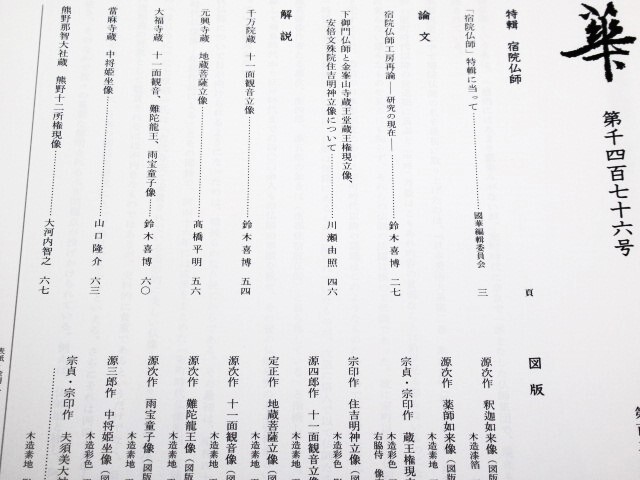 華
第千四百七十六号
特輯 宿院仏師
頁
「宿院仏師」特輯に当って……………………國華編輯委員会 三
論文
宿院仏師工房再論――研究の現在――……………………鈴木喜博 二七
下御門仏師と金峯山寺蔵王堂蔵王権現立像、
安倍文殊院住吉明神立像について……………………川瀬由照 四六
解説
千万院蔵 十一面観音立像……………………鈴木喜博 五四
元興寺蔵 地蔵菩薩立像……………………髙橋平明 五六
大福寺蔵 十一面観音、難陀龍王、雨宝童子像……………………鈴木喜博 六〇
當麻寺蔵 中将姫坐像……………………山口隆介 六三
熊野那智大社蔵 熊野十二所権現像……………………大河内智之 六七
図版
源次作 釈迦如来像(図版
木造漆箔
源次作 薬師如来像(図版
木造素地
宗貞・宗印作 蔵王権現
右脇侍 像
木造彩色
宗印作 住吉明神立像(
木造彩色
源四郎作 十一面観音立像
木造素地
定正作 地蔵菩薩立像(図
木造彩色
源次作 十一面観音像(図版
木造素地
源次作 難陀龍王像(図版
木造素地
源次作 雨宝童子像(図版
木造素地
源三郎作 中将姫坐像(図
木造彩色
宗貞・宗印作 夫須美大神
木造素地